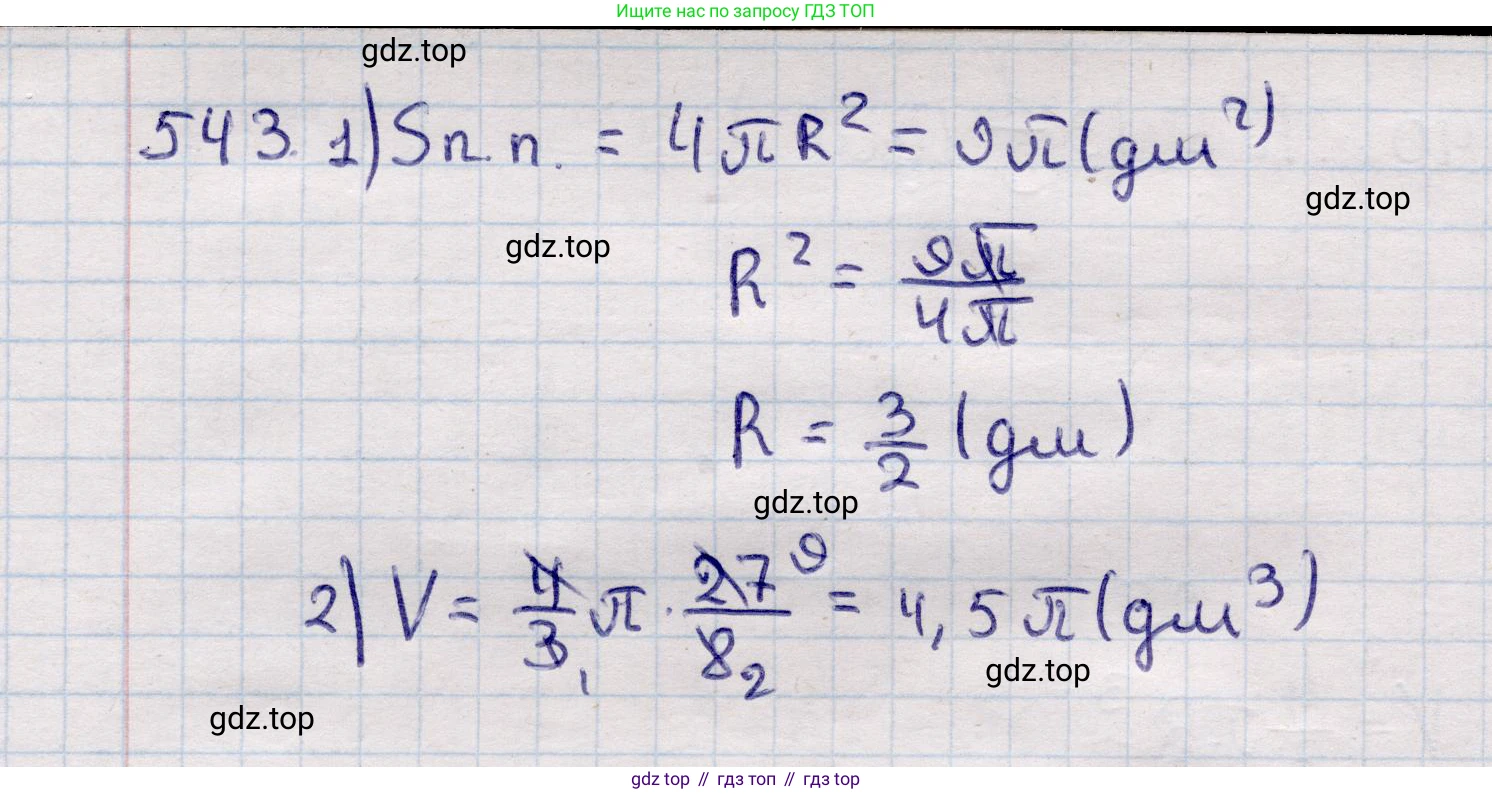 Ищите нас по запросу ГДЗ ТОП
gdz.top
543. 1) Sп.п. = 4πR² = 9π(дм²)
gdz.top
gdz.top
R² = 9π/4π
R = 3/2 (дм)
gdz.top
2) V = 4/3 1 π · 27 9/8 2 = 4,5π(дм³)
gdz.top
gdz.top
gdz top // гдз топ // gdz top